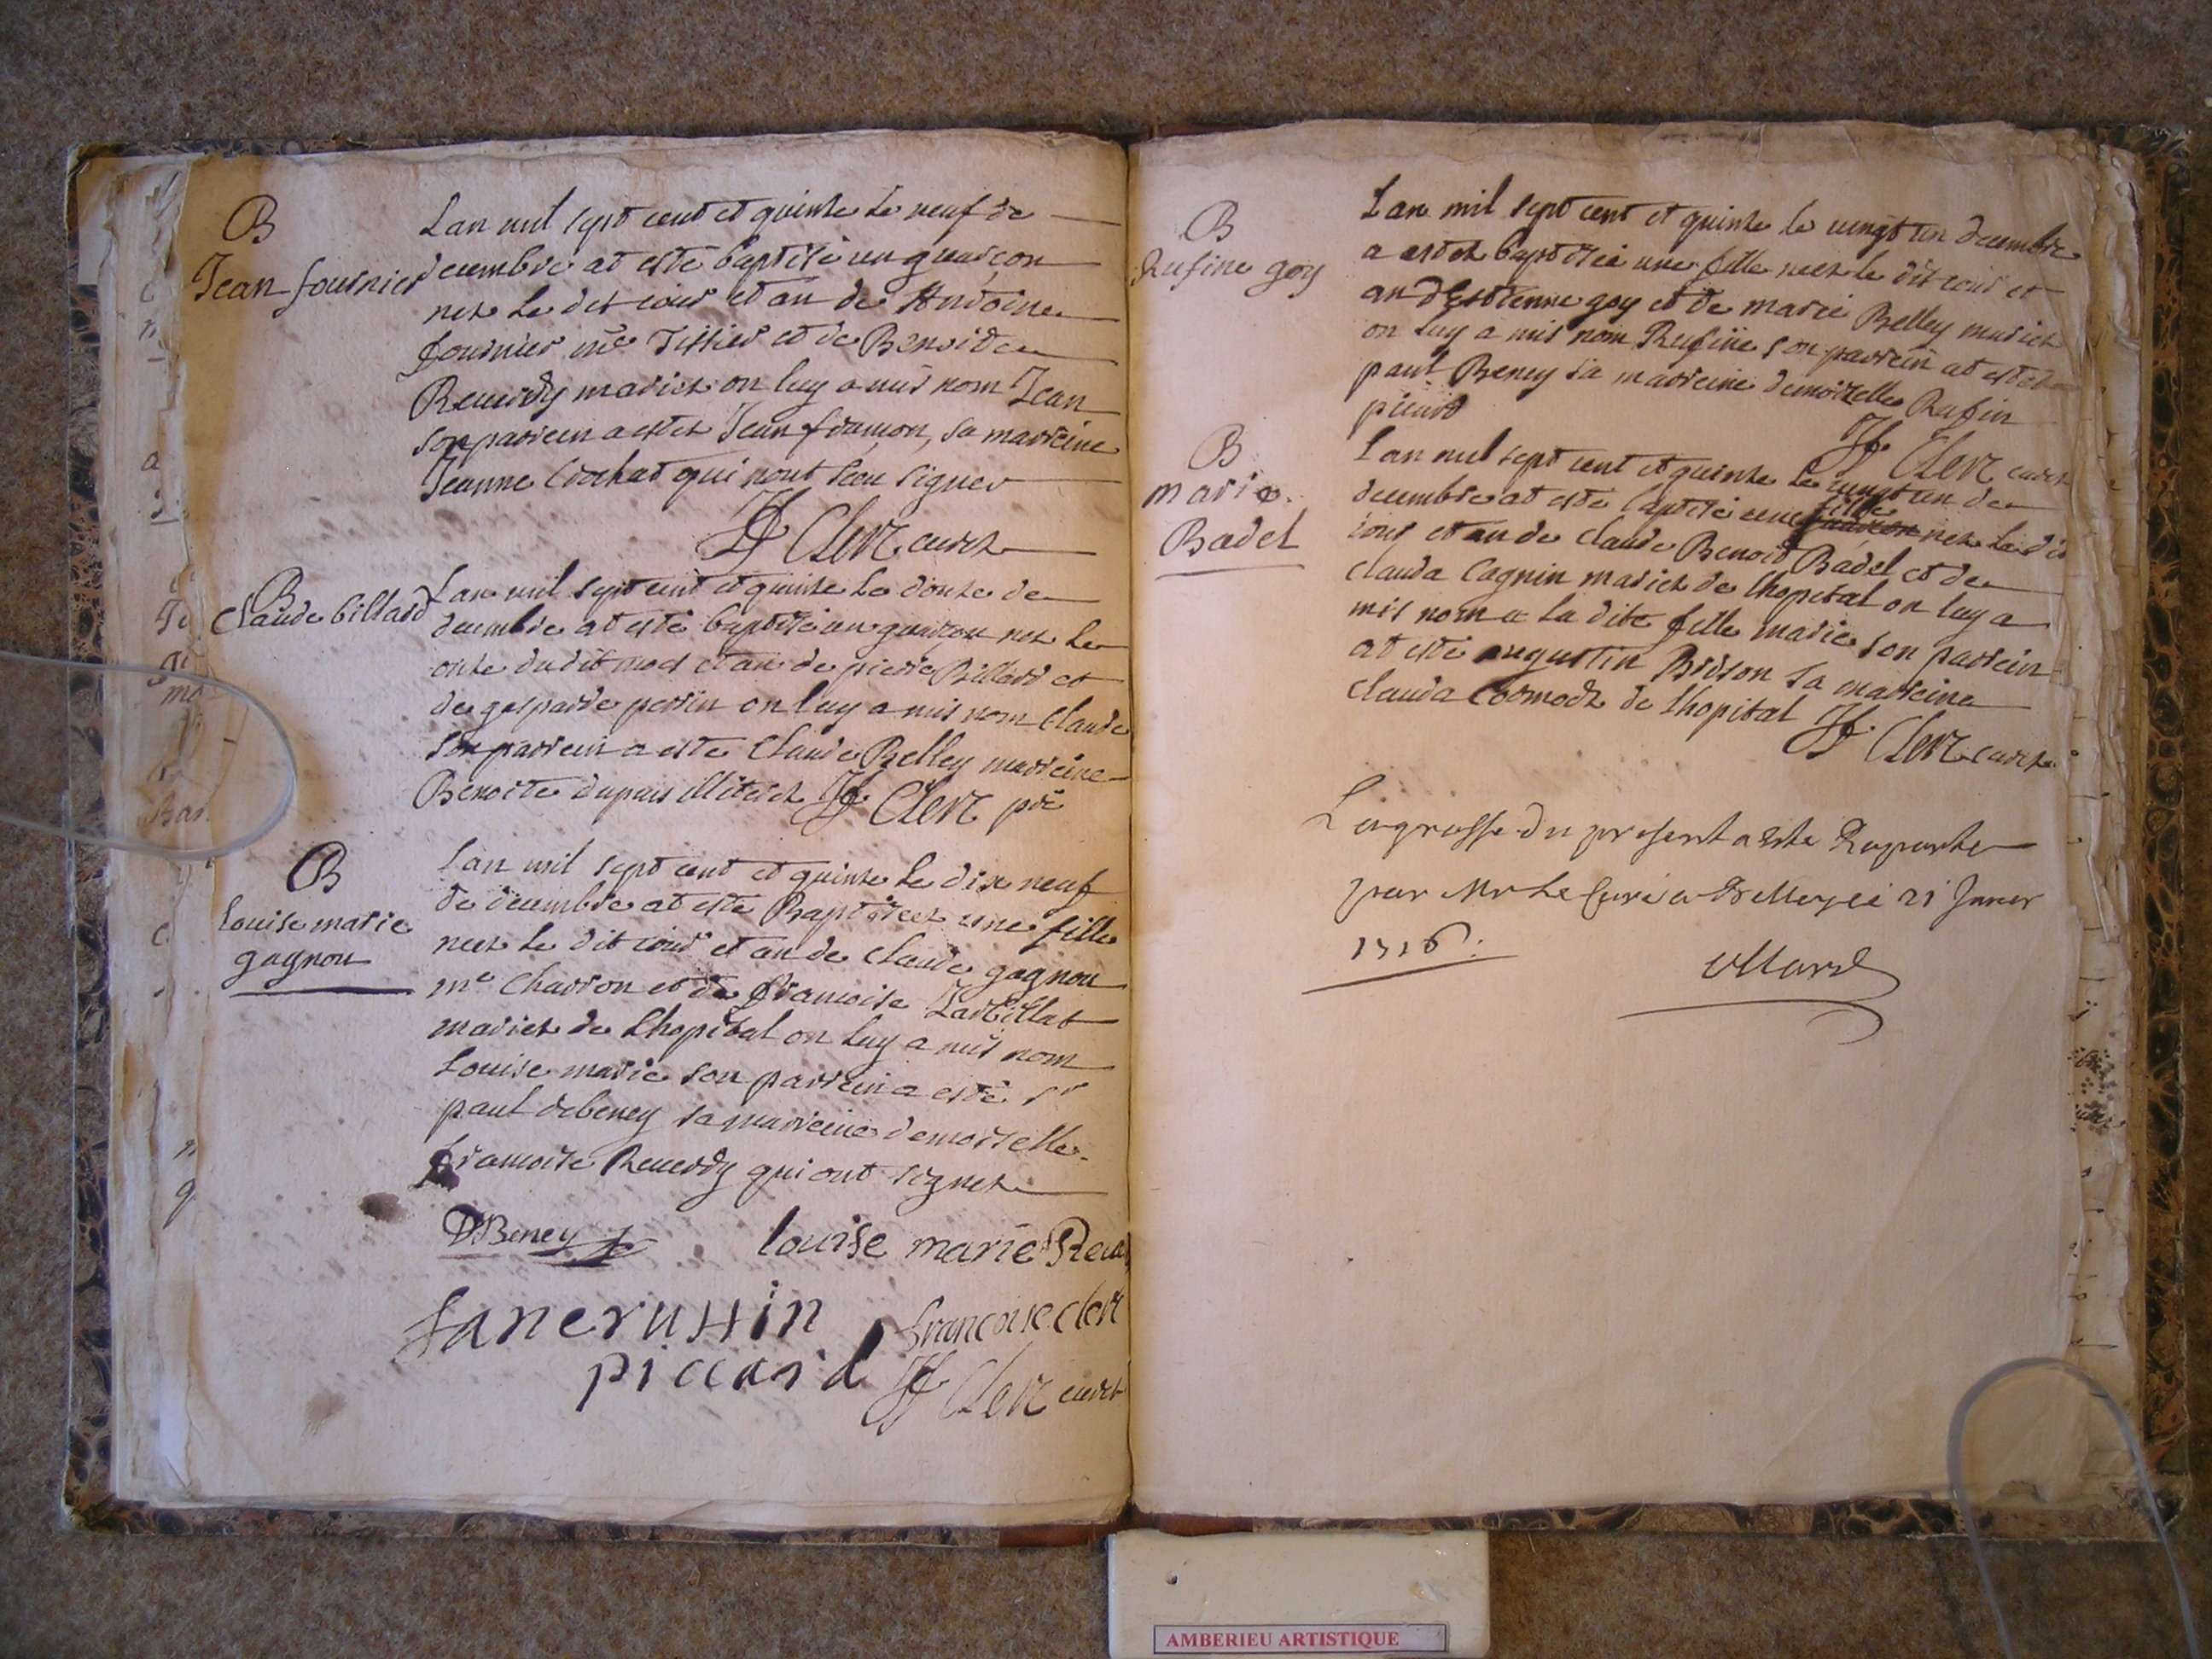 B
Jean fournier
Lan mil sept cent et quinze le neuf de
decembre at esté baptisé un guarcon
nez le dit iour et an de Andoine
fournier me Tissier et de Benoite
Reverdy mariez on luy a mis nom Jean
son parrein a estez Jean framon, sa marreine
Jeanne Crochat qui nont sceu signer
Clerc curez
B
Claude billard
Lan mil sept cent et quinze le douze de
decembre at esté baptisé un guarcon nez le
onze dudit mois et an de pierre Billard et
de gasparde perrin on luy a mis nom Claude
son parrein a este Claude Belley marreine
Benoite dupuis illiterez Clerc ptre
B
Louise marie
gagnon
Lan mil sept cent et quinze le dix neuf
de decembre at este Baptisez une fille
neez le dit iour et an de Claude gagnon
me Charron et de francoise
mariez de Lhopital on luy a mis nom
Louise marie son parrein a esté sr
paul debeney sa marreine demoiselle
francoise Reverdy qui ont signez
DBeney louise marie
piccard francoise clerc
Clerc curez
B
Rufine goy
Lan mil sept cent et quinze le vingt un decembre
a estez baptisée une fille neez le dit iour et
an dEstienne goy et de marie Belley mariez
on luy a mis nom Rufine son parrein at estez
paul Beney sa marreine demoizelle Rufin
picard
Clerc curez
B
marie
Badel
Lan mil sept cent et quinze le vingt un de
decembre at esté baptisé une fille nez le dit
iour et an de Claude Benoit Badel et de
Clauda Cagnin mariez de lhopital on luy a
mis nom a la dite fille marie son parrein
at esté augustin Brison sa marreine
Clauda Cormodz de Lhopital
Clerc curez
Lingrosse du present a este Raporte
par Mr Le Curé a Belley ce 21 Janvier
1716.
AMBERIEU ARTISTIQUE